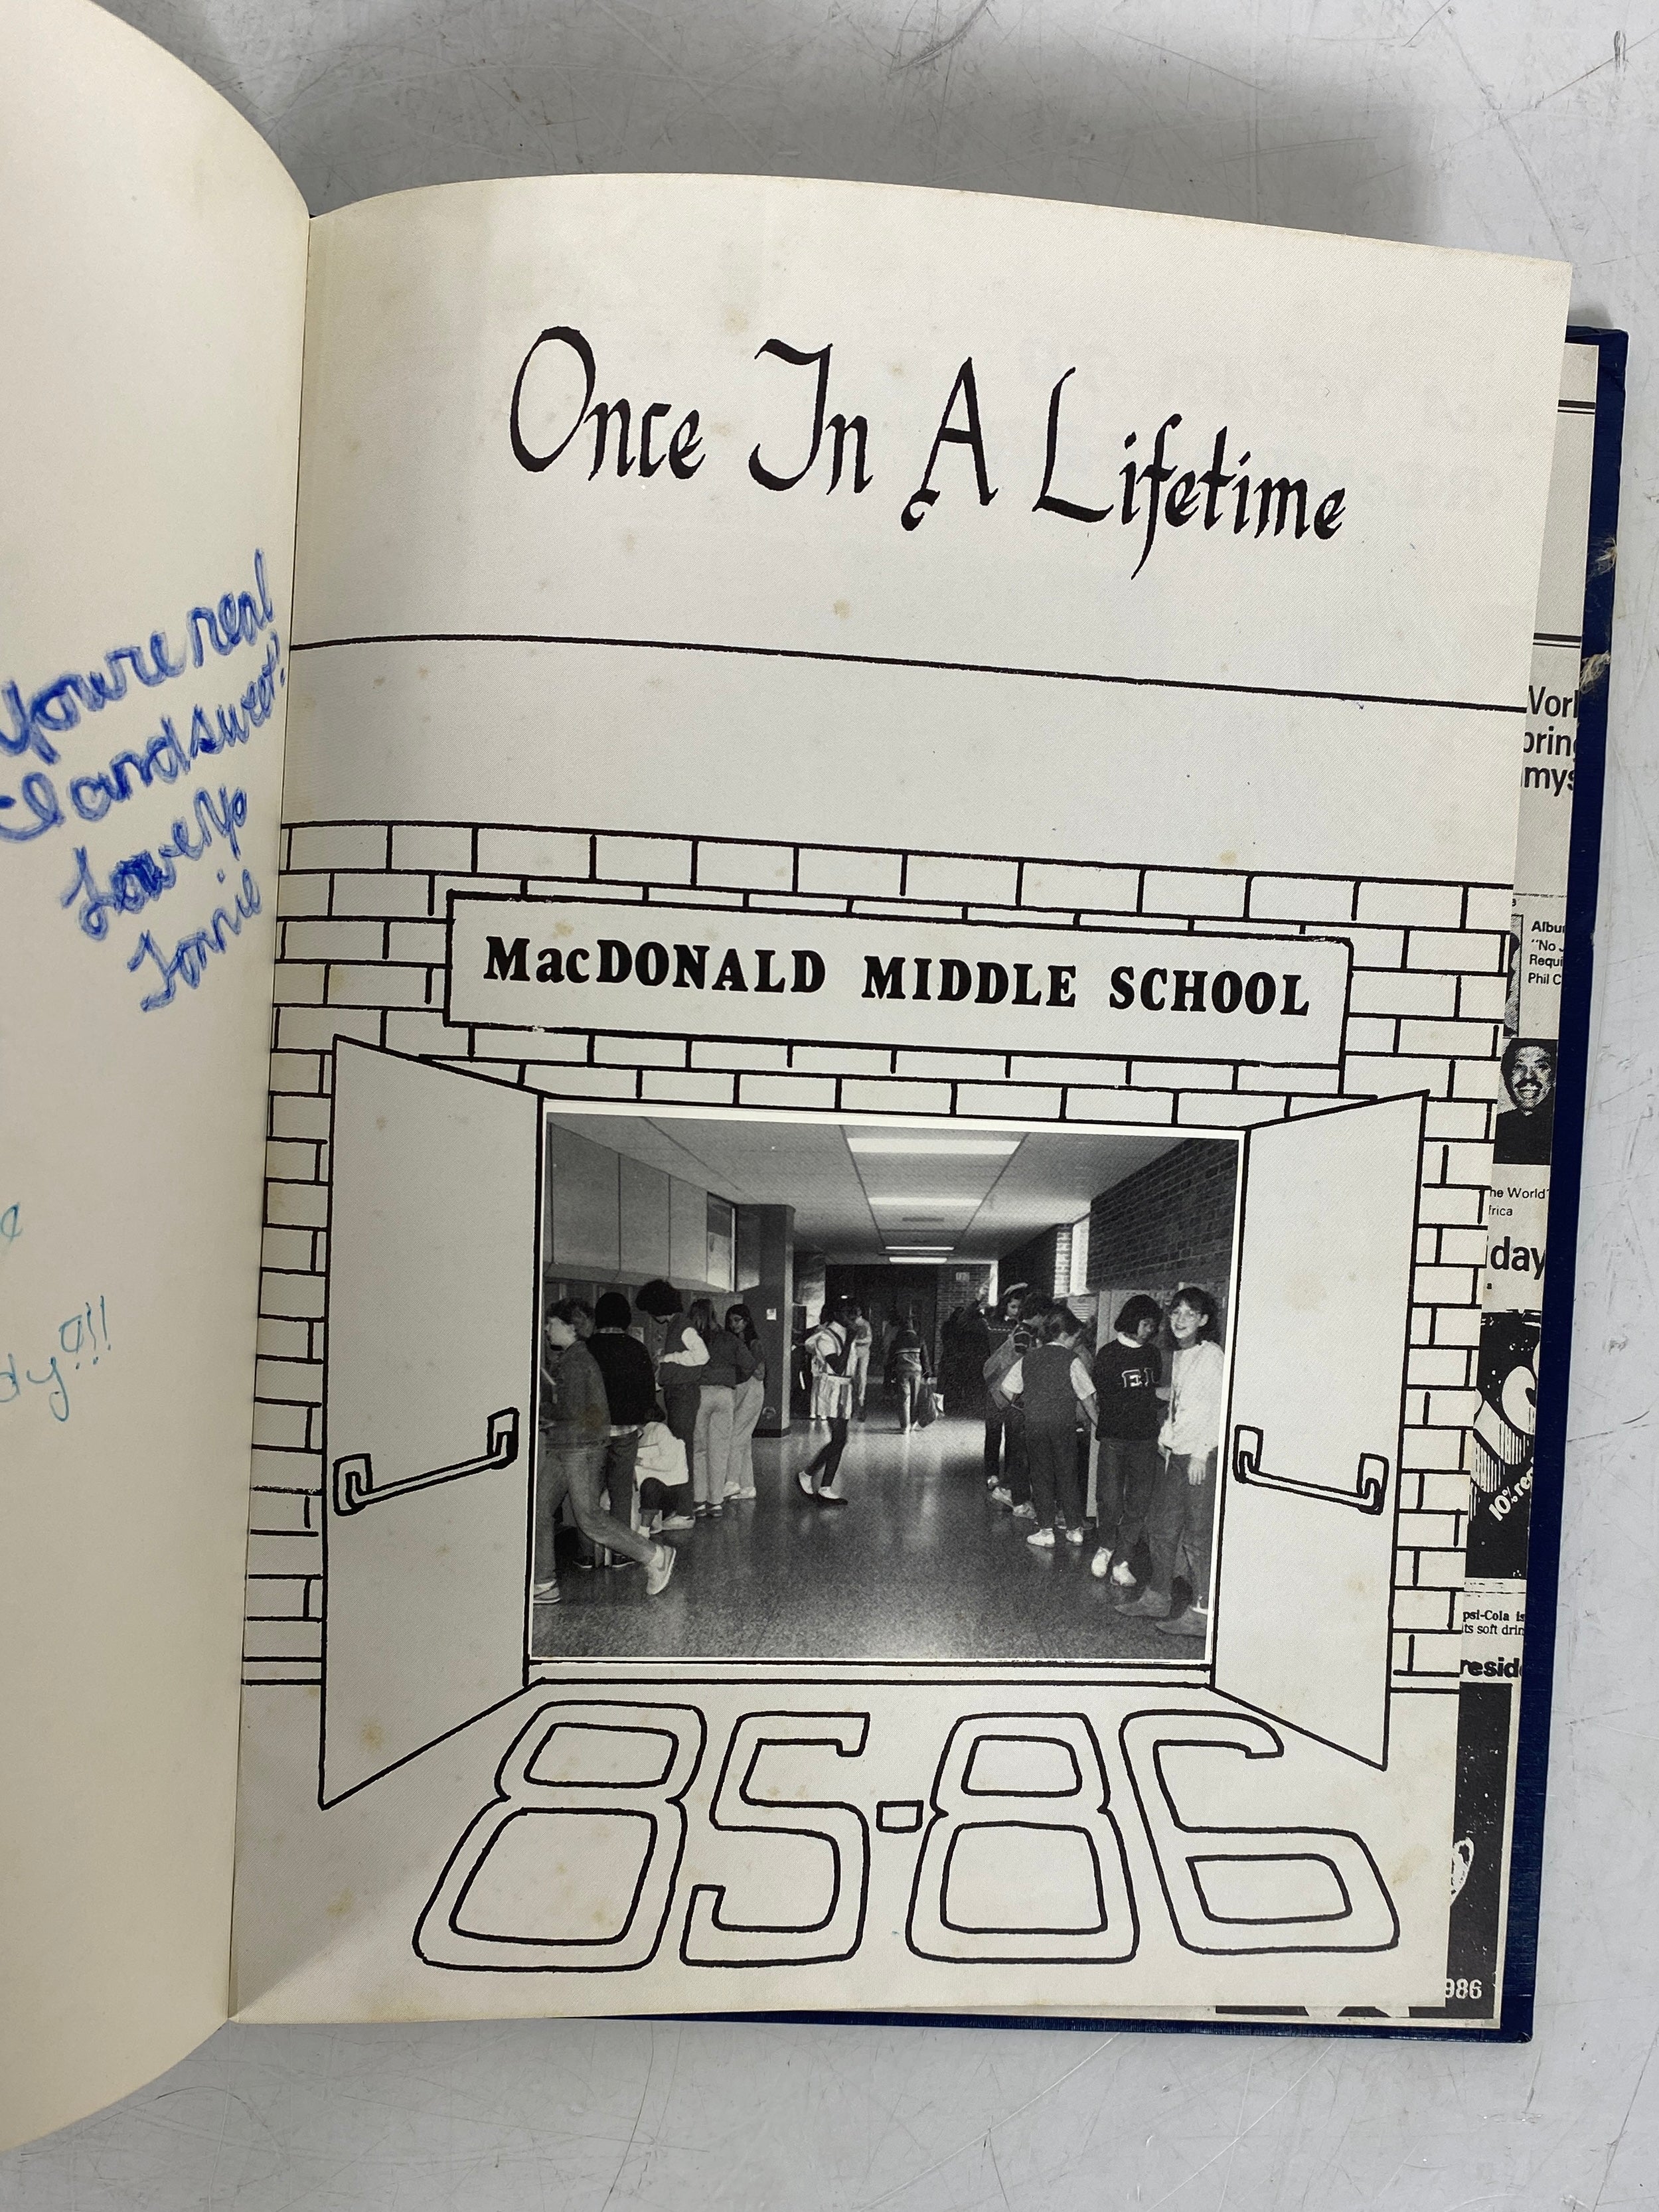 You're real
and sweet!
Love Ya
Once In A Lifetime
MacDONALD MIDDLE SCHOOL
EL
85-86
Album
"No J
Requi
Phil C
he World'
frica
day
10% re
psi-Cola is
ts soft drin
resid
986